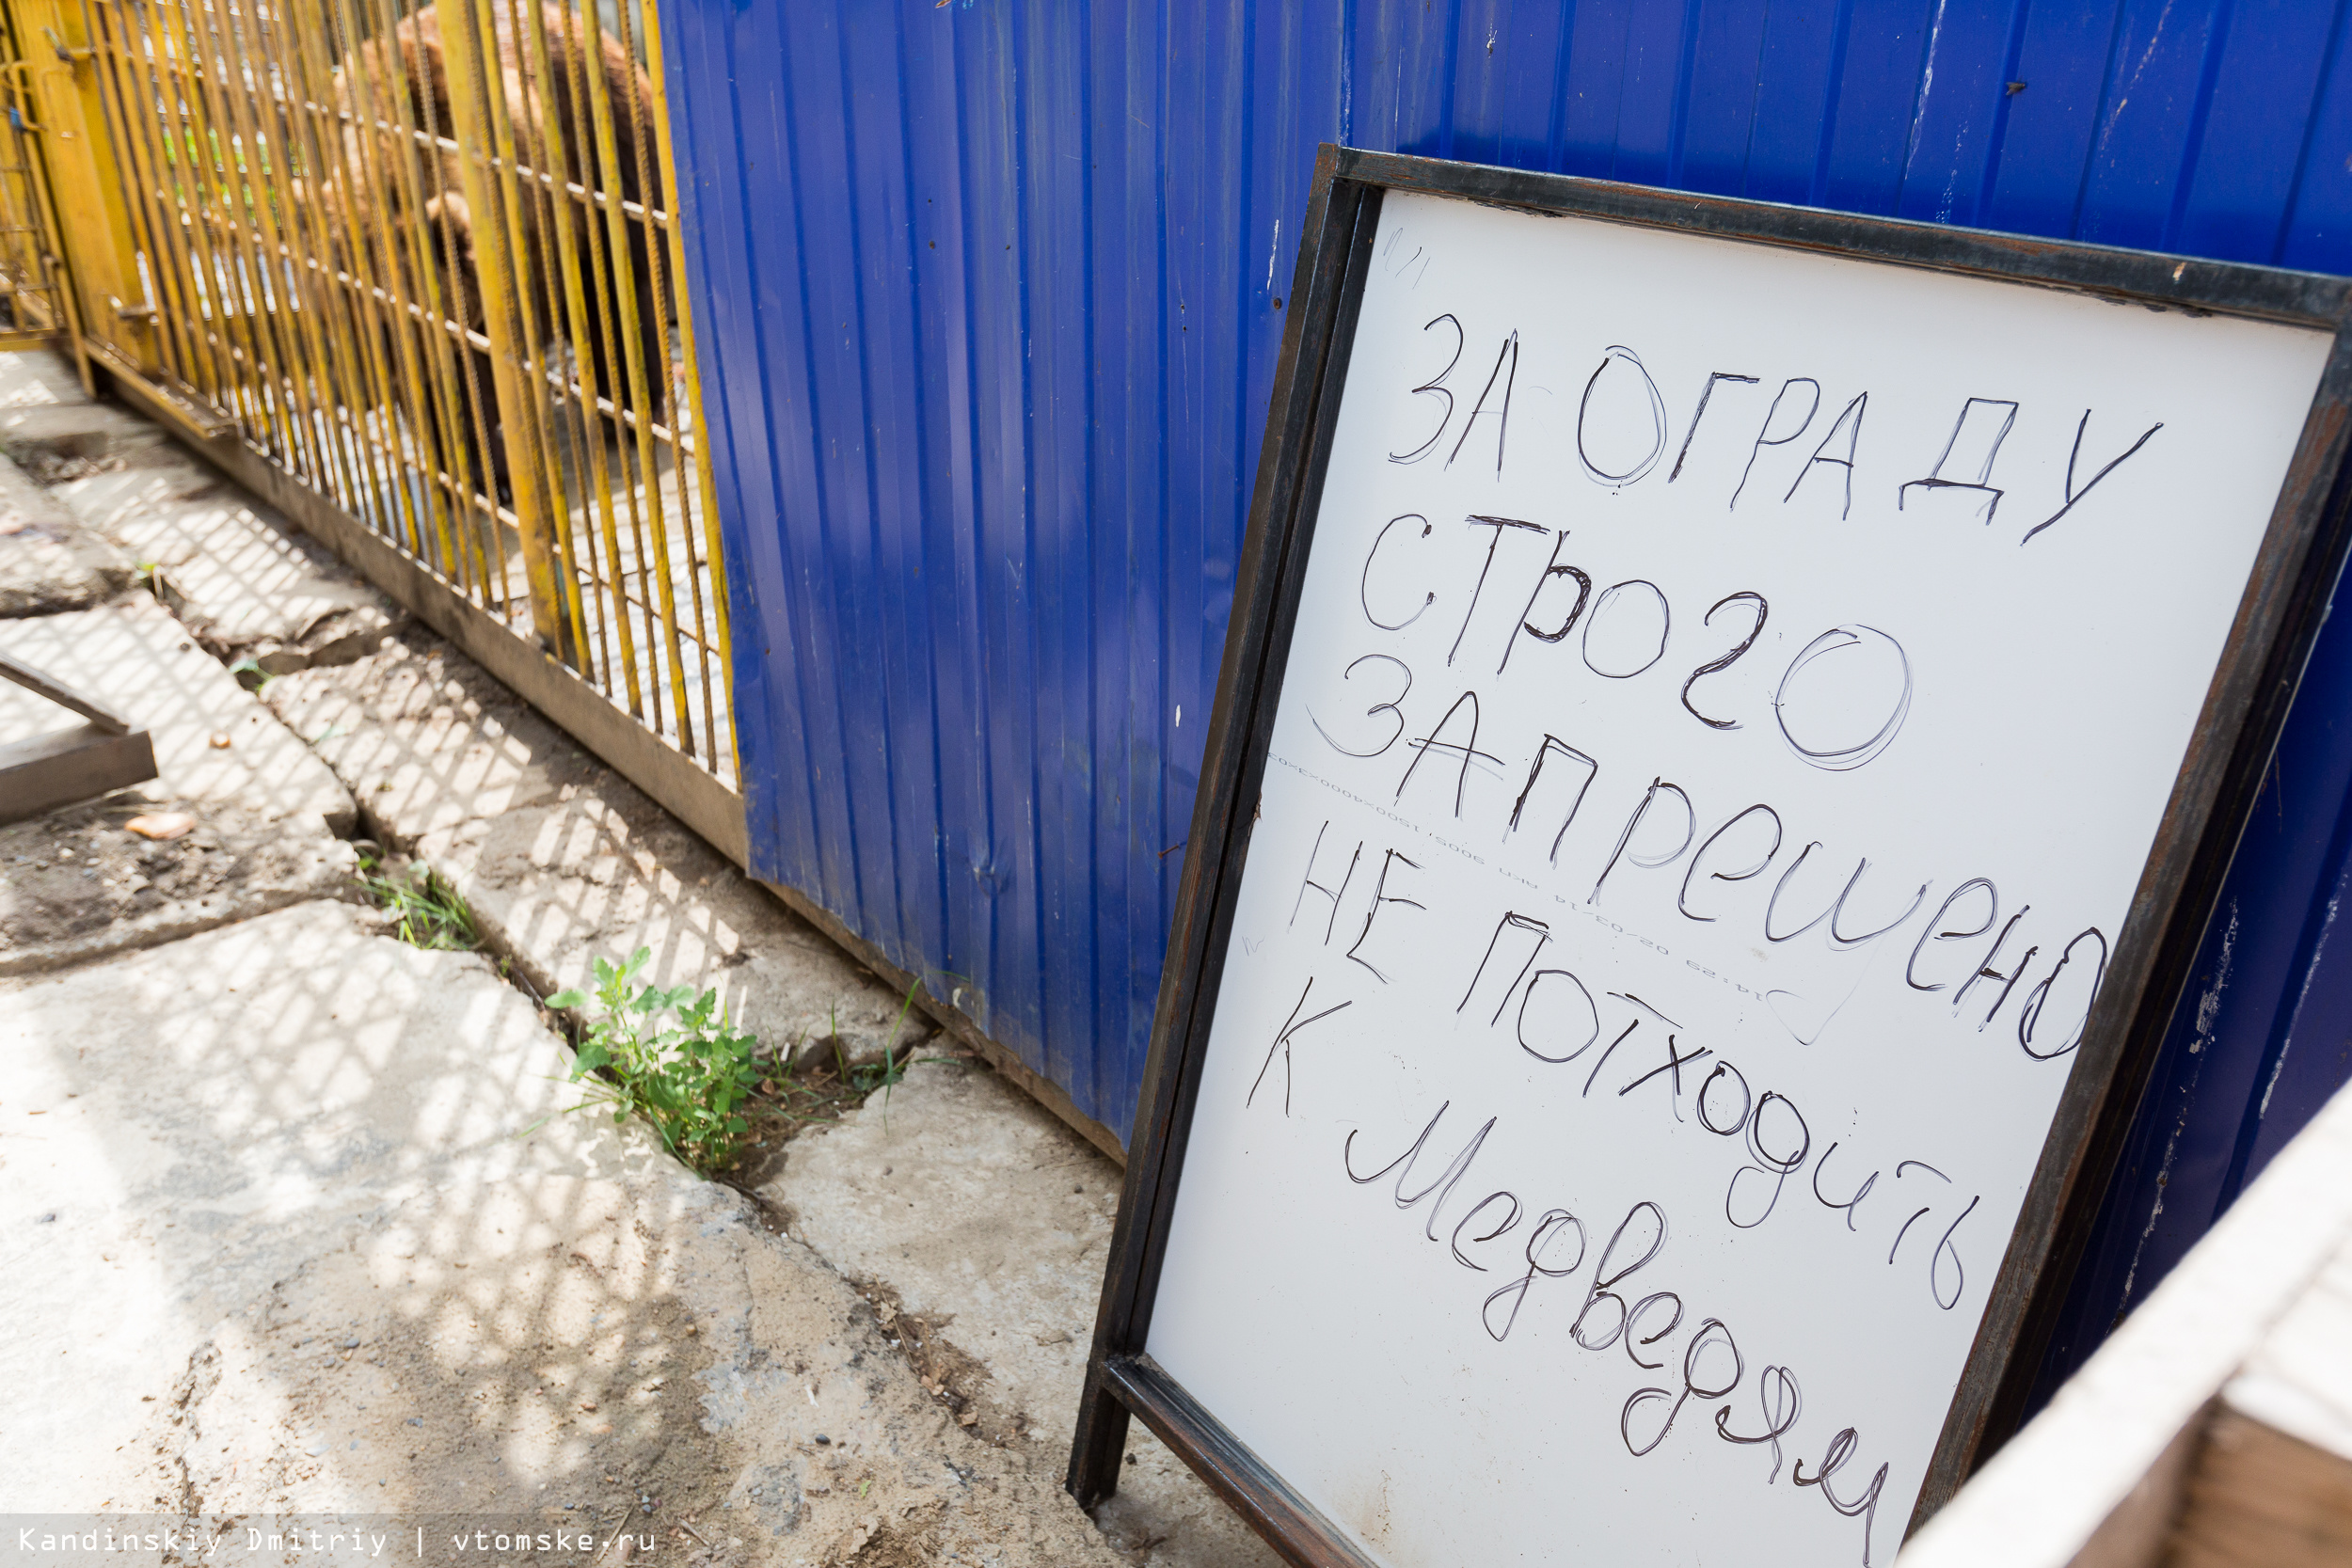 ЗА ОГРАДУ
СТРОГО
ЗАПРЕЩЕНО
НЕ ПОТХОДИТЬ
К МЕДВЕДЯМ
Kandinskiy Dmitriy | vtomske.ru